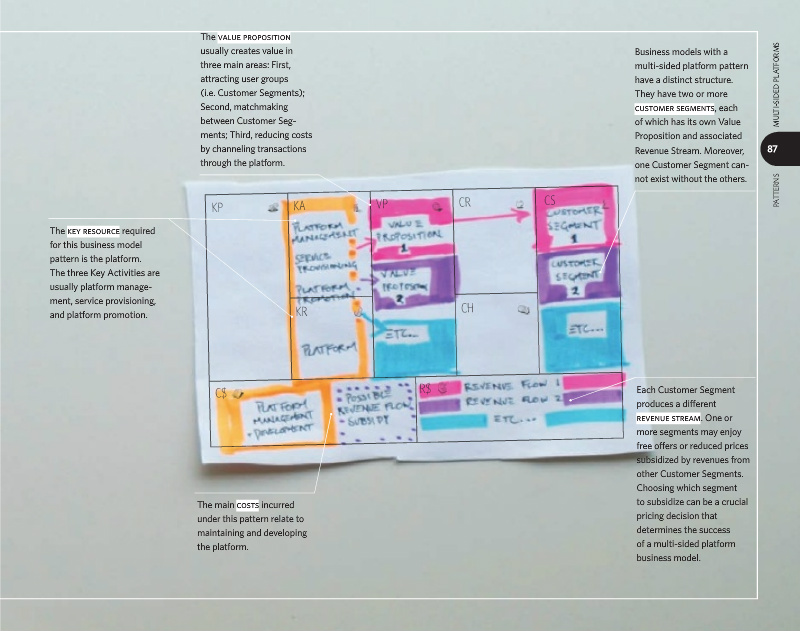 The VALUE PROPOSITION
usually creates value in
three main areas: First,
attracting user groups
(i.e. Customer Segments);
Second, matchmaking
between Customer Seg-
ments; Third, reducing costs
by channeling transactions
through the platform.
Business models with a
multi-sided platform pattern
have a distinct structure.
They have two or more
CUSTOMER SEGMENTS, each
of which has its own Value
Proposition and associated
Revenue Stream. Moreover,
one Customer Segment can-
not exist without the others.
MULTI-SIDED PLATFORMS
87
PATTERNS
The KEY RESOURCE required
for this business model
pattern is the platform.
The three Key Activities are
usually platform manage-
ment, service provisioning,
and platform promotion.
KP
KA
PLATFORM
MANAGEMENT
SERVICE
PROVISIONING
PLATFORM
PROMOTION
KR
PLATFORM
VP
VALUE
PROPOSITION
1
VALUE
PROPOSITION
2
ETC...
CR
CH
CS
CUSTOMER
SEGMENT
1
CUSTOMER
SEGMENT
2
ETC...
C$
PLATFORM
MANAGEMENT
+ DEVELOPMENT
POSSIBLE
REVENUE FLOW
SUBSIDY
R$
REVENUE FLOW 1
REVENUE FLOW 2
ETC...
Each Customer Segment
produces a different
REVENUE STREAM. One or
more segments may enjoy
free offers or reduced prices
subsidized by revenues from
other Customer Segments.
Choosing which segment
to subsidize can be a crucial
pricing decision that
determines the success
of a multi-sided platform
business model.
The main COSTS incurred
under this pattern relate to
maintaining and developing
the platform.